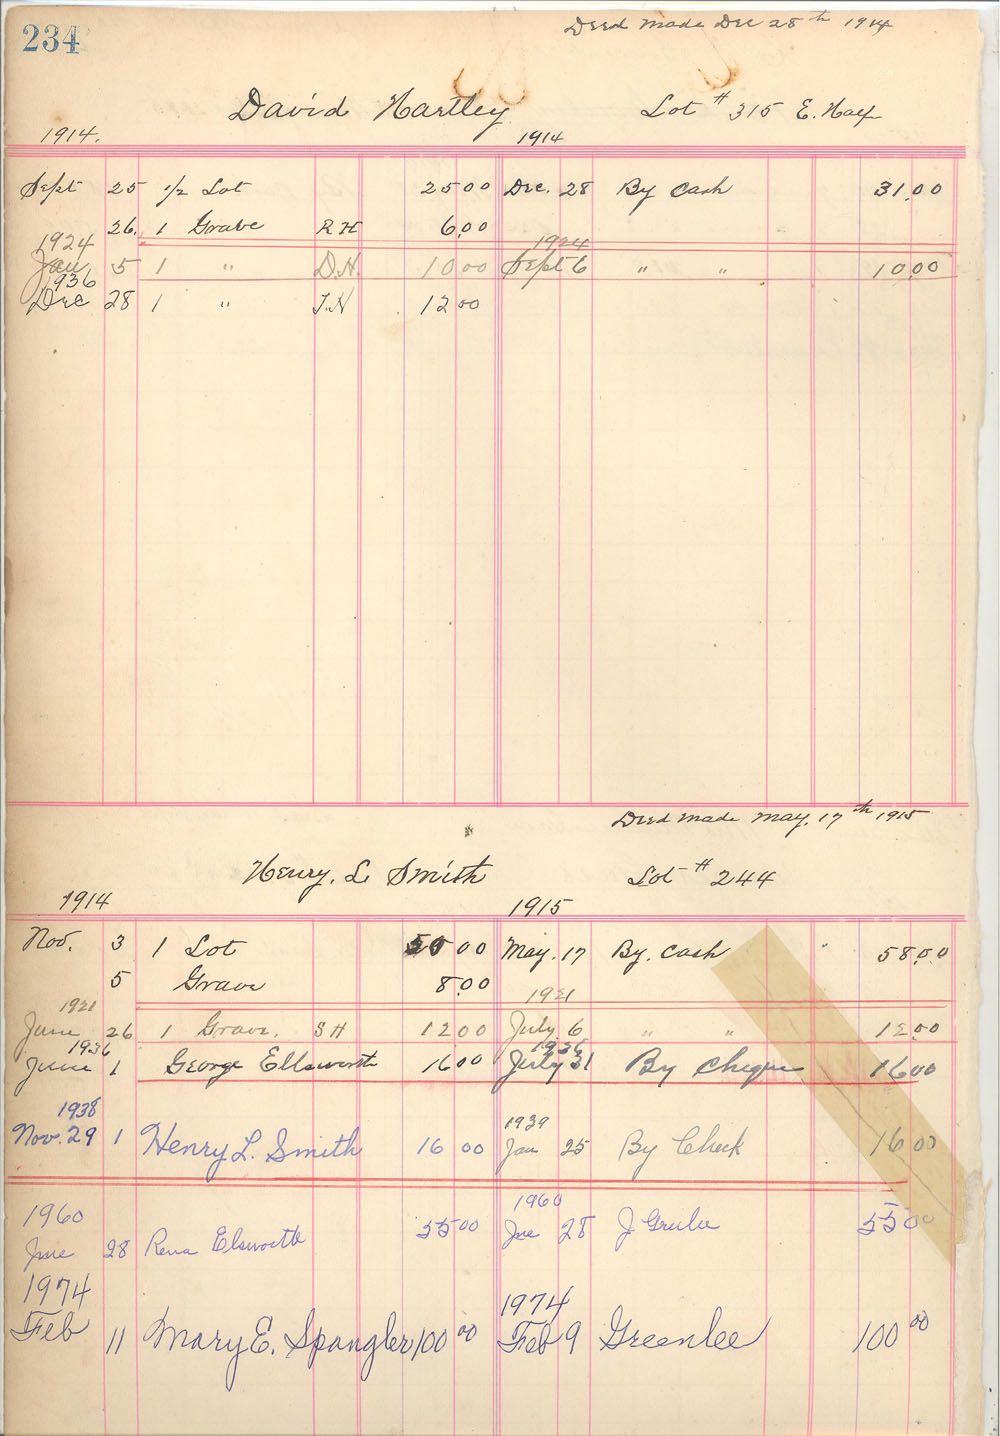 234
Deed made Dec 28th 1914
David Hartley Lot # 315 E. Half
1914. 1914
Sept 25 1/2 Lot 25 00 Dec. 28 By Cash 31.00
26. 1 Grave R H 6.00
1924 1924
Jan 5 1 " D.H. 10 00 Sept 6 " " 10.00
1936
Dec 28 1 " J.H 12 00
Deed made May. 17th 1915
Henry. L Smith Lot # 244
1914 1915
Nov. 3 1 Lot 50 00 May. 17 By. Cash 58.00
5 Grave 8.00
1921 1921
June 26 1 Grave. S H 12 00 July 6 " " 12.00
1936 1936
June 1 George Ellsworth 16 00 July 31 By Cheque 16 00
1938 1939
Nov. 29 1 Henry L. Smith 16 00 Jan 25 By Check 16 00
1960 1960
June 28 Rena Elsworth 55 00 Jne 28 J Grube 55 00
1974 1974
Feb 11 Mary E. Spangler 100 00 Feb 9 Greenlee 100 00